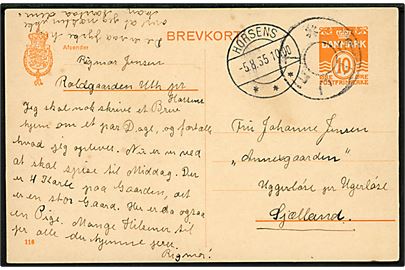 BREVKORT
Afsender
Rigmor Jensen
Roldgaarden Uth pr
Horsens
Jeg skal nok skrive et Brev
hjem om et par Dage, og fortælle
hvad jeg oplever. Nu er vi ved
at skal spise til Middag. Der
er 4 Karle paa Gaarden, det
er en stor Gaard. Her er da ogsaa
en Pige. Mange Hilsner til
jer alle du hjemme fra
Rigmor!
116
HORSENS
-5.11.35 1000
DANMARK
10
POSTFÆRGE
Fru Johanne Jensen
"Annesgaarden"
Uggerløse pr Ugerløse
Sjælland.